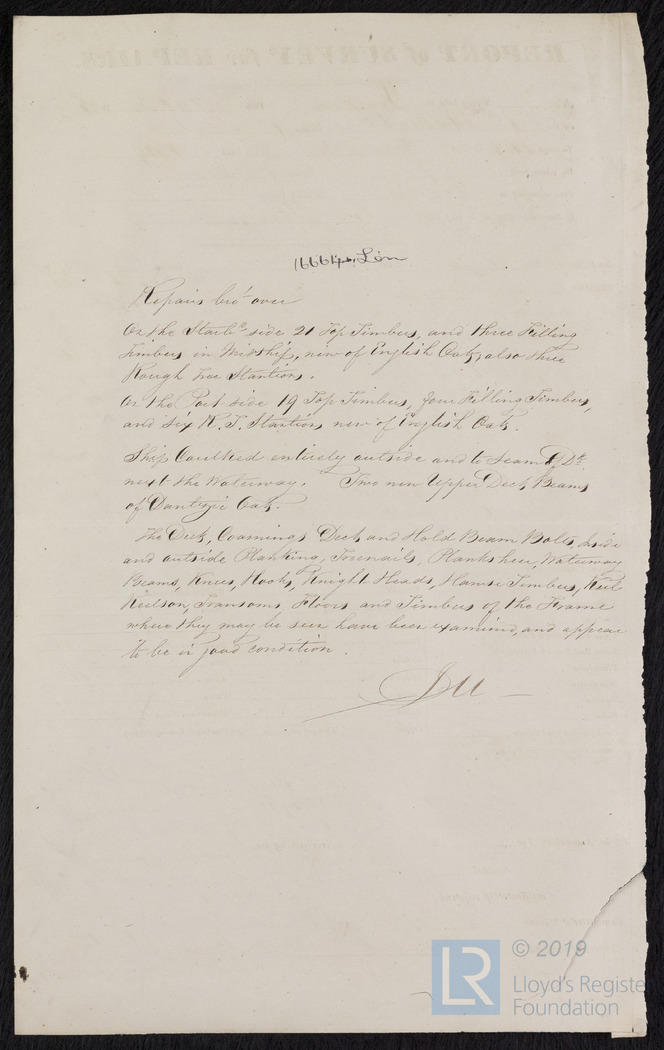 16664 Lon
Repairs bro't over
On the Starb'd side 21 Top Timbers, and three Filling
Timbers in Midship, new of English Oak, also three
Rough Tree Stantions.
On the Port side 19 Top Timbers, four Filling Timbers,
and six R. T. Stantions new of English Oak.
Ship Caulked entirely outside and to Seam of Dk
next the Waterway. Two new Upper Deck Beams
of Dantzic Oak.
The Deck, Coamings Deck and Hold Beam Bolts, Inside
and outside Planking, Treenails, Planksheer, Waterway
Beams, Knees, Hooks, Knight Heads, Hawse Timbers, Keel
Keilson, Transoms, Floors and Timbers of the Frame
where they may be seen have been examined, and appear
to be in good condition.
LR
© 2019
Lloyd's Register
Foundation